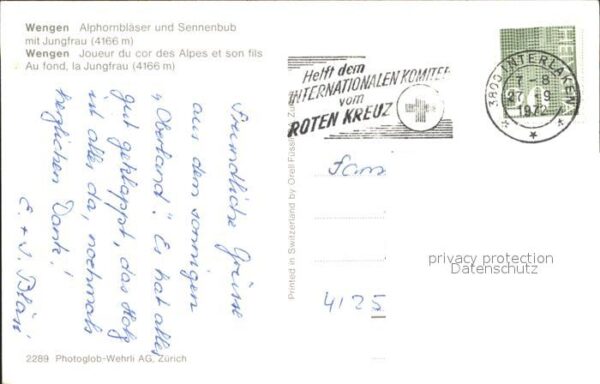 Wengen Alphornbläser und Sennenbub
mit Jungfrau (4166 m)
Wengen Joueur du cor des Alpes et son fils
Au fond, la Jungfrau (4166 m)
Freundliche Grüsse
aus dem sonnigen
„Oberland". Es hat alles
gut geklappt, das Holz
ist alles da, nochmals
herzlichen Dank!
E. + J. Bläsi
2289 Photoglob-Wehrli AG, Zürich
Printed in Switzerland by Orell Füssli
Helft dem
INTERNATIONALEN KOMITEE
vom
ROTEN KREUZ
3800 INTERLAKEN
7-8
27.-9
1972
HELVETIA
Fam
4125
privacy protection
Datenschutz